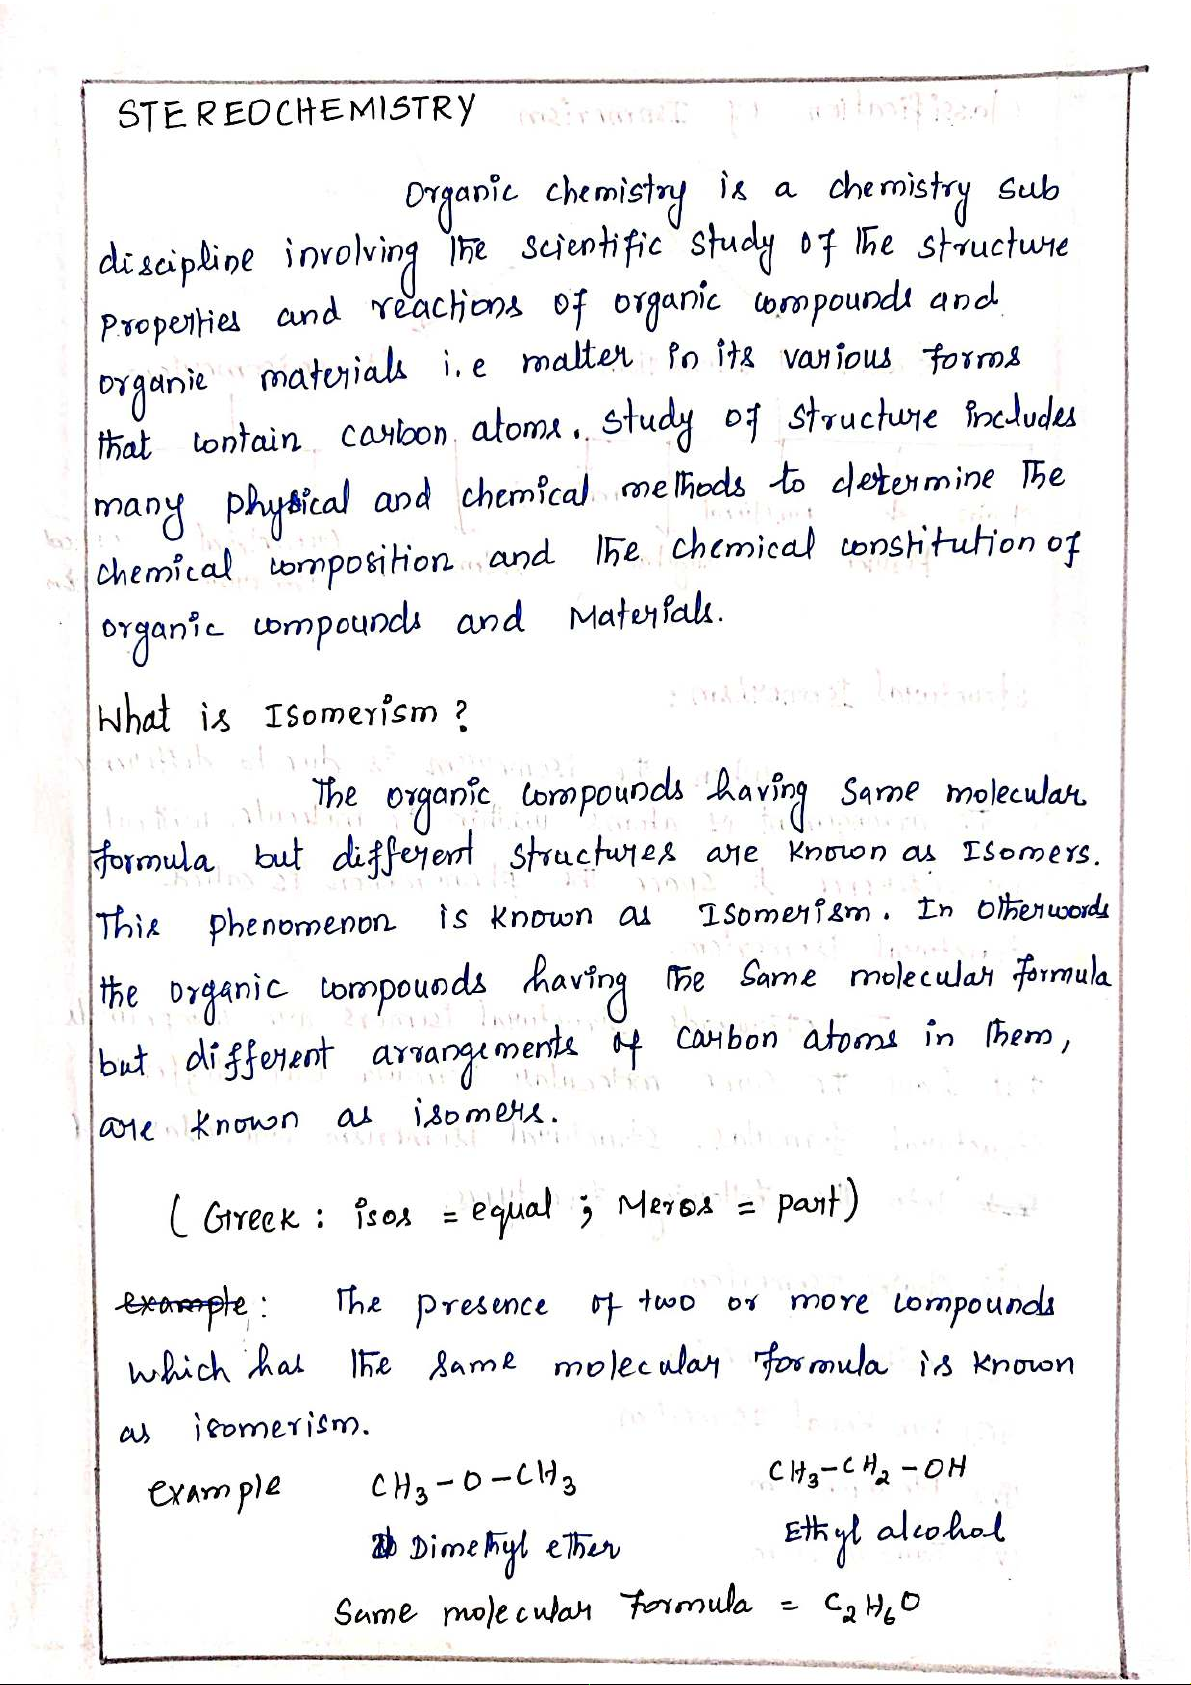 STEREOCHEMISTRY
Organic chemistry is a chemistry sub
discipline involving the scientific study of the structure
Properties and reactions of organic compounds and
organic materials i.e matter in its various forms
that contain carbon atoms. study of structure includes
many physical and chemical methods to determine The
chemical composition and the chemical constitution of
organic compounds and Materials.
What is Isomerism ?
The organic compounds having same molecular
formula but different structures are known as Isomers.
This phenomenon is known as Isomerism. In otherwords
the organic compounds having the same molecular formula
but different arrangements of carbon atoms in them,
are known as isomers.
( Greek : isos = equal ; Meros = part)
example : The presence of two or more compounds
which has the same molecular formula is known
as isomerism.
example CH3-O-CH3 CH3-CH2-OH
Dimethyl ether Ethyl alcohol
Same molecular formula = C2H6O